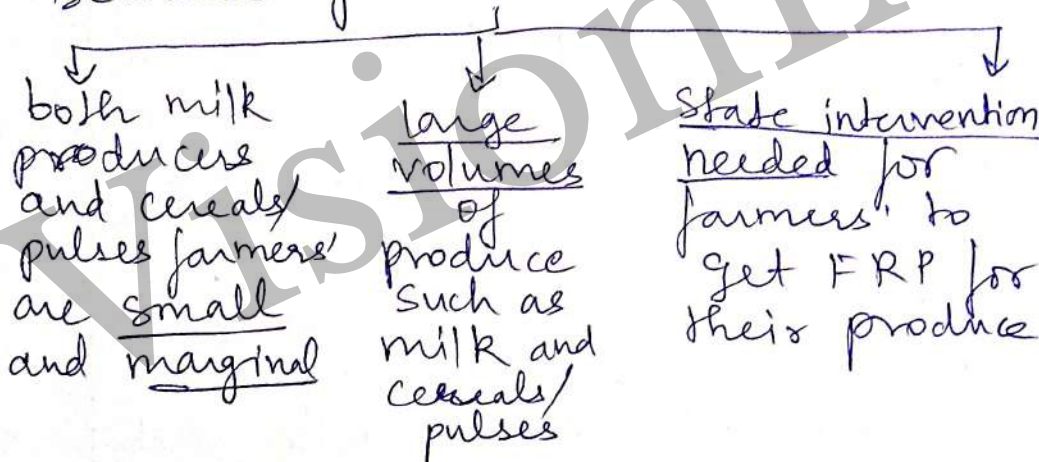 both milk
producers
and cereals/
pulses farmers'
are small
and marginal
large
volumes
of
produce
such as
milk and
cereals/
pulses
State intervention
needed for
farmers' to
get FRP for
their produce
Vision